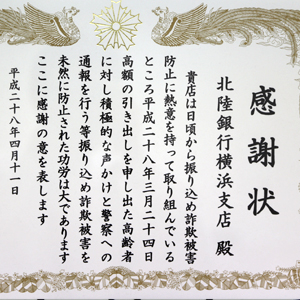 感謝状
北陸銀行横浜支店 殿
貴店は日頃から振り込め詐欺被害
防止に熱意を持って取り組んでいる
ところ平成二十八年三月二十四日
高額の引き出しを申し出た高齢者
に対し積極的な声かけと警察への
通報を行う等振り込め詐欺被害を
未然に防止された功労は大であります
ここに感謝の意を表します
平成二十八年四月十一日